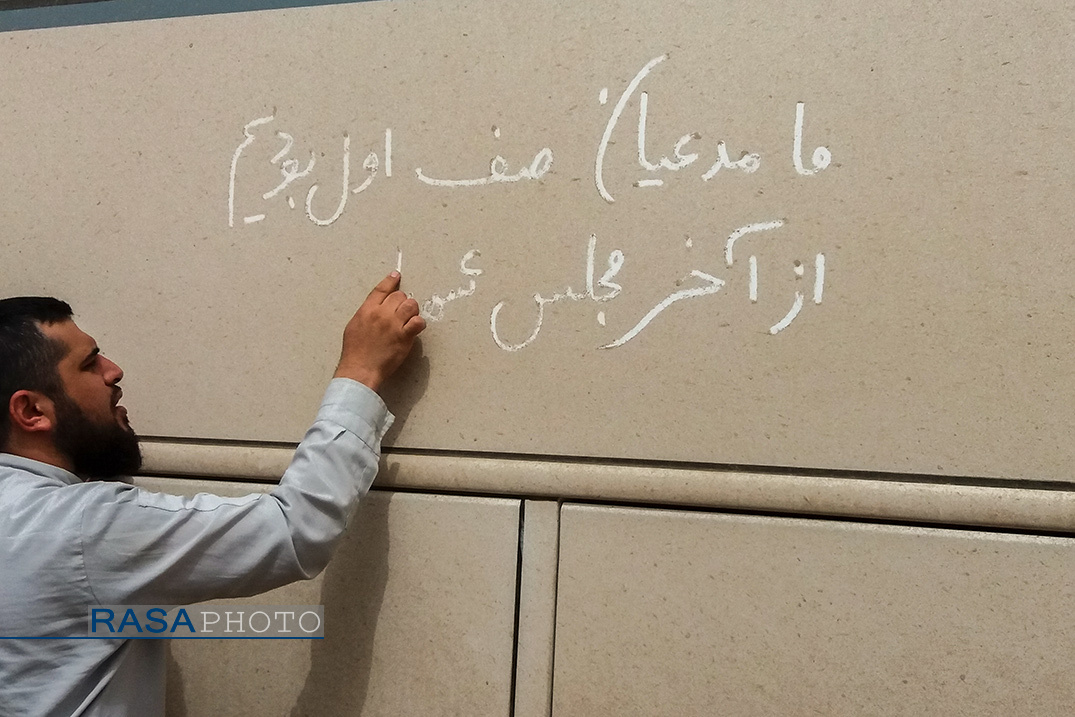 ما مدعیان صف اول بودیم
از آخر مجلس
RASAPHOTO